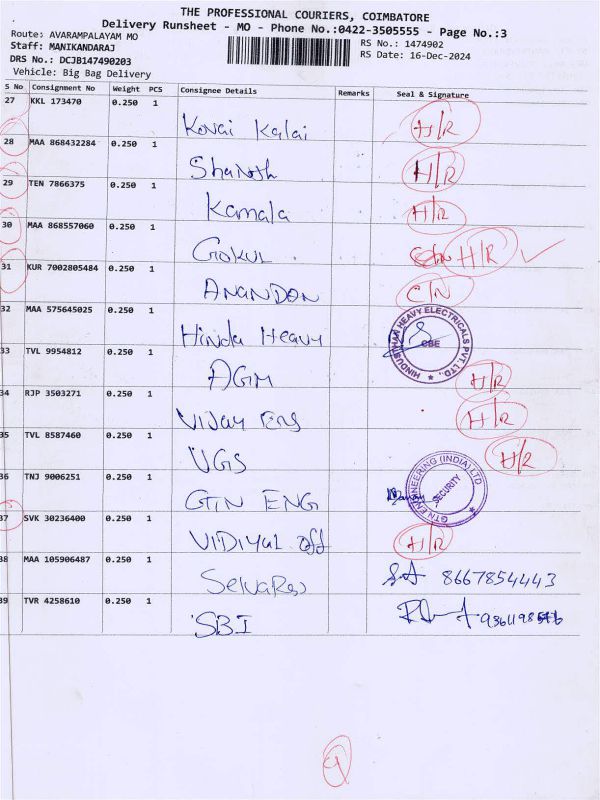 THE PROFESSIONAL COURIERS, COIMBATORE
Delivery Runsheet - MO - Phone No.:0422-3505555 - Page No.:3
Route: AVARAMPALAYAM MO
Staff: MANIKANDARAJ
DRS No.: DCJB147490203
Vehicle: Big Bag Delivery
RS No.: 1474902
RS Date: 16-Dec-2024
S No Consignment No Weight PCS Consignee Details Remarks Seal & Signature
27 KKL 173470 0.250 1
Kovai Kalai H/R
28 MAA 868432284 0.250 1
H/R
29 TEN 7866375 0.250 1
Kamala H/R
30 MAA 868557060 0.250 1
GOKUL H/R
31 KUR 7002805484 0.250 1
ANANDON C/N
32 MAA 575645025 0.250 1
Hindu Heavy
HINDUSTHAN HEAVY ELECTRICALS PVT. LTD., CBE
33 TVL 9954812 0.250 1
AGM H/R
34 RJP 3503271 0.250 1
Vijay Eng H/R
35 TVL 8587460 0.250 1
UGS H/R
36 TNJ 9006251 0.250 1
GTN ENG
GTN ENGINEERING (INDIA) LTD SECURITY
37 SVK 30236400 0.250 1
VIDIYAL off H/R
38 MAA 105906487 0.250 1
Selvaraj 8667854443
39 TVR 4258610 0.250 1
SBI